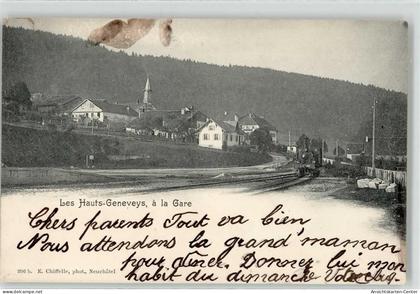 Les Hauts-Geneveys, à la Gare
Chers parents Tout va bien
Nous attendons la grand'maman
pour dîner. Donnez lui mon
habit du dimanche Votre
296 b. E. Chiffelle, phot., Neuchâtel
www.ansichtskarten-center.de
Ansichtskarten-Center